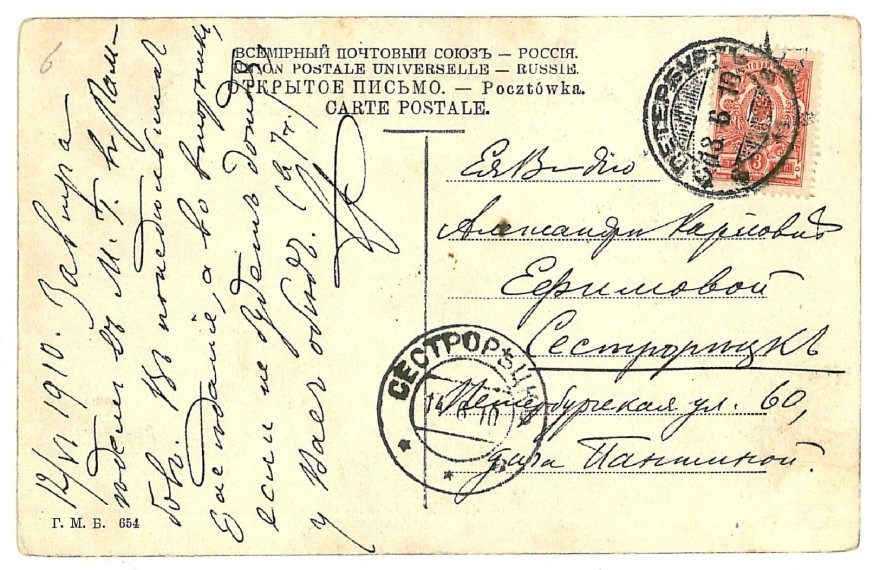 6
ВСЕМІРНЫЙ ПОЧТОВЫЙ СОЮЗЪ — РОССІЯ.
UNION POSTALE UNIVERSELLE — RUSSIE.
ОТКРЫТОЕ ПИСЬМО. — Pocztówka.
CARTE POSTALE.
С.ПЕТЕРБУРГЪ
13 6 10
3
Александрѣ Карловнѣ
Ефимовой
Сестрорѣцкъ
Петербургская ул. 60,
дача Паншиной.
СЕСТРОРѢЦКЪ
14 6 10
12/VI 1910. Завтра
въ М. Т. и
Въ понедѣльникъ
засѣданіе, а во вторникъ
если не будетъ дождя,
у Васъ обѣдъ. (въ 7 ч.)
Г. М. Б. 654